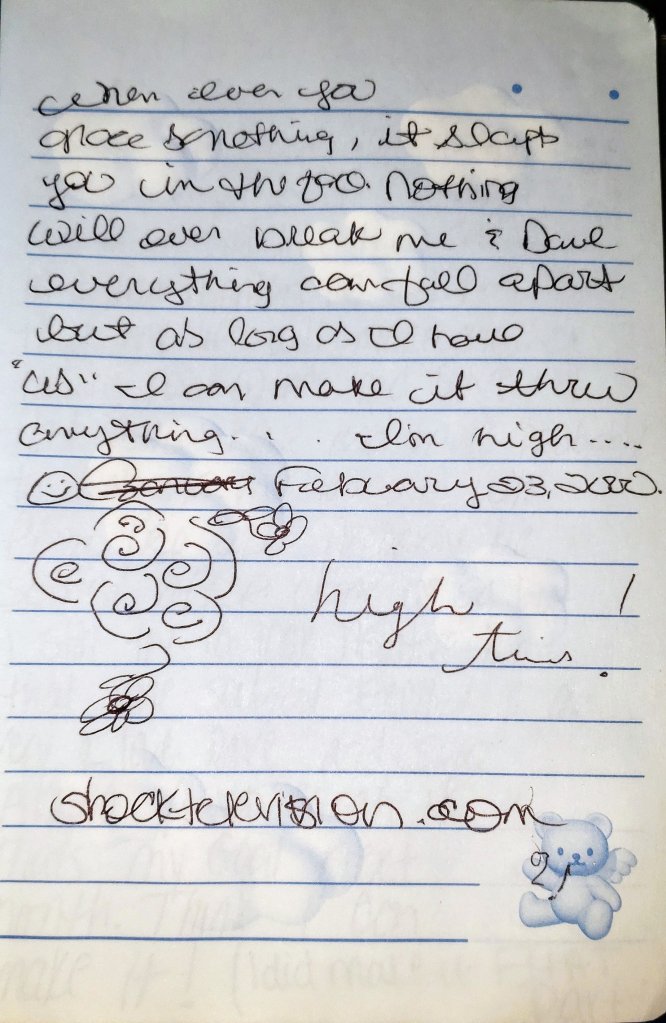 when ever you
grace something, it slaps
you in the face. Nothing
will ever break me & Dave
everything can fall apart
but as long as I have
"us" I can make it threw
anything... . I'm high....
January February 23, 2000.
high !
this.
shocktelevision.com
2